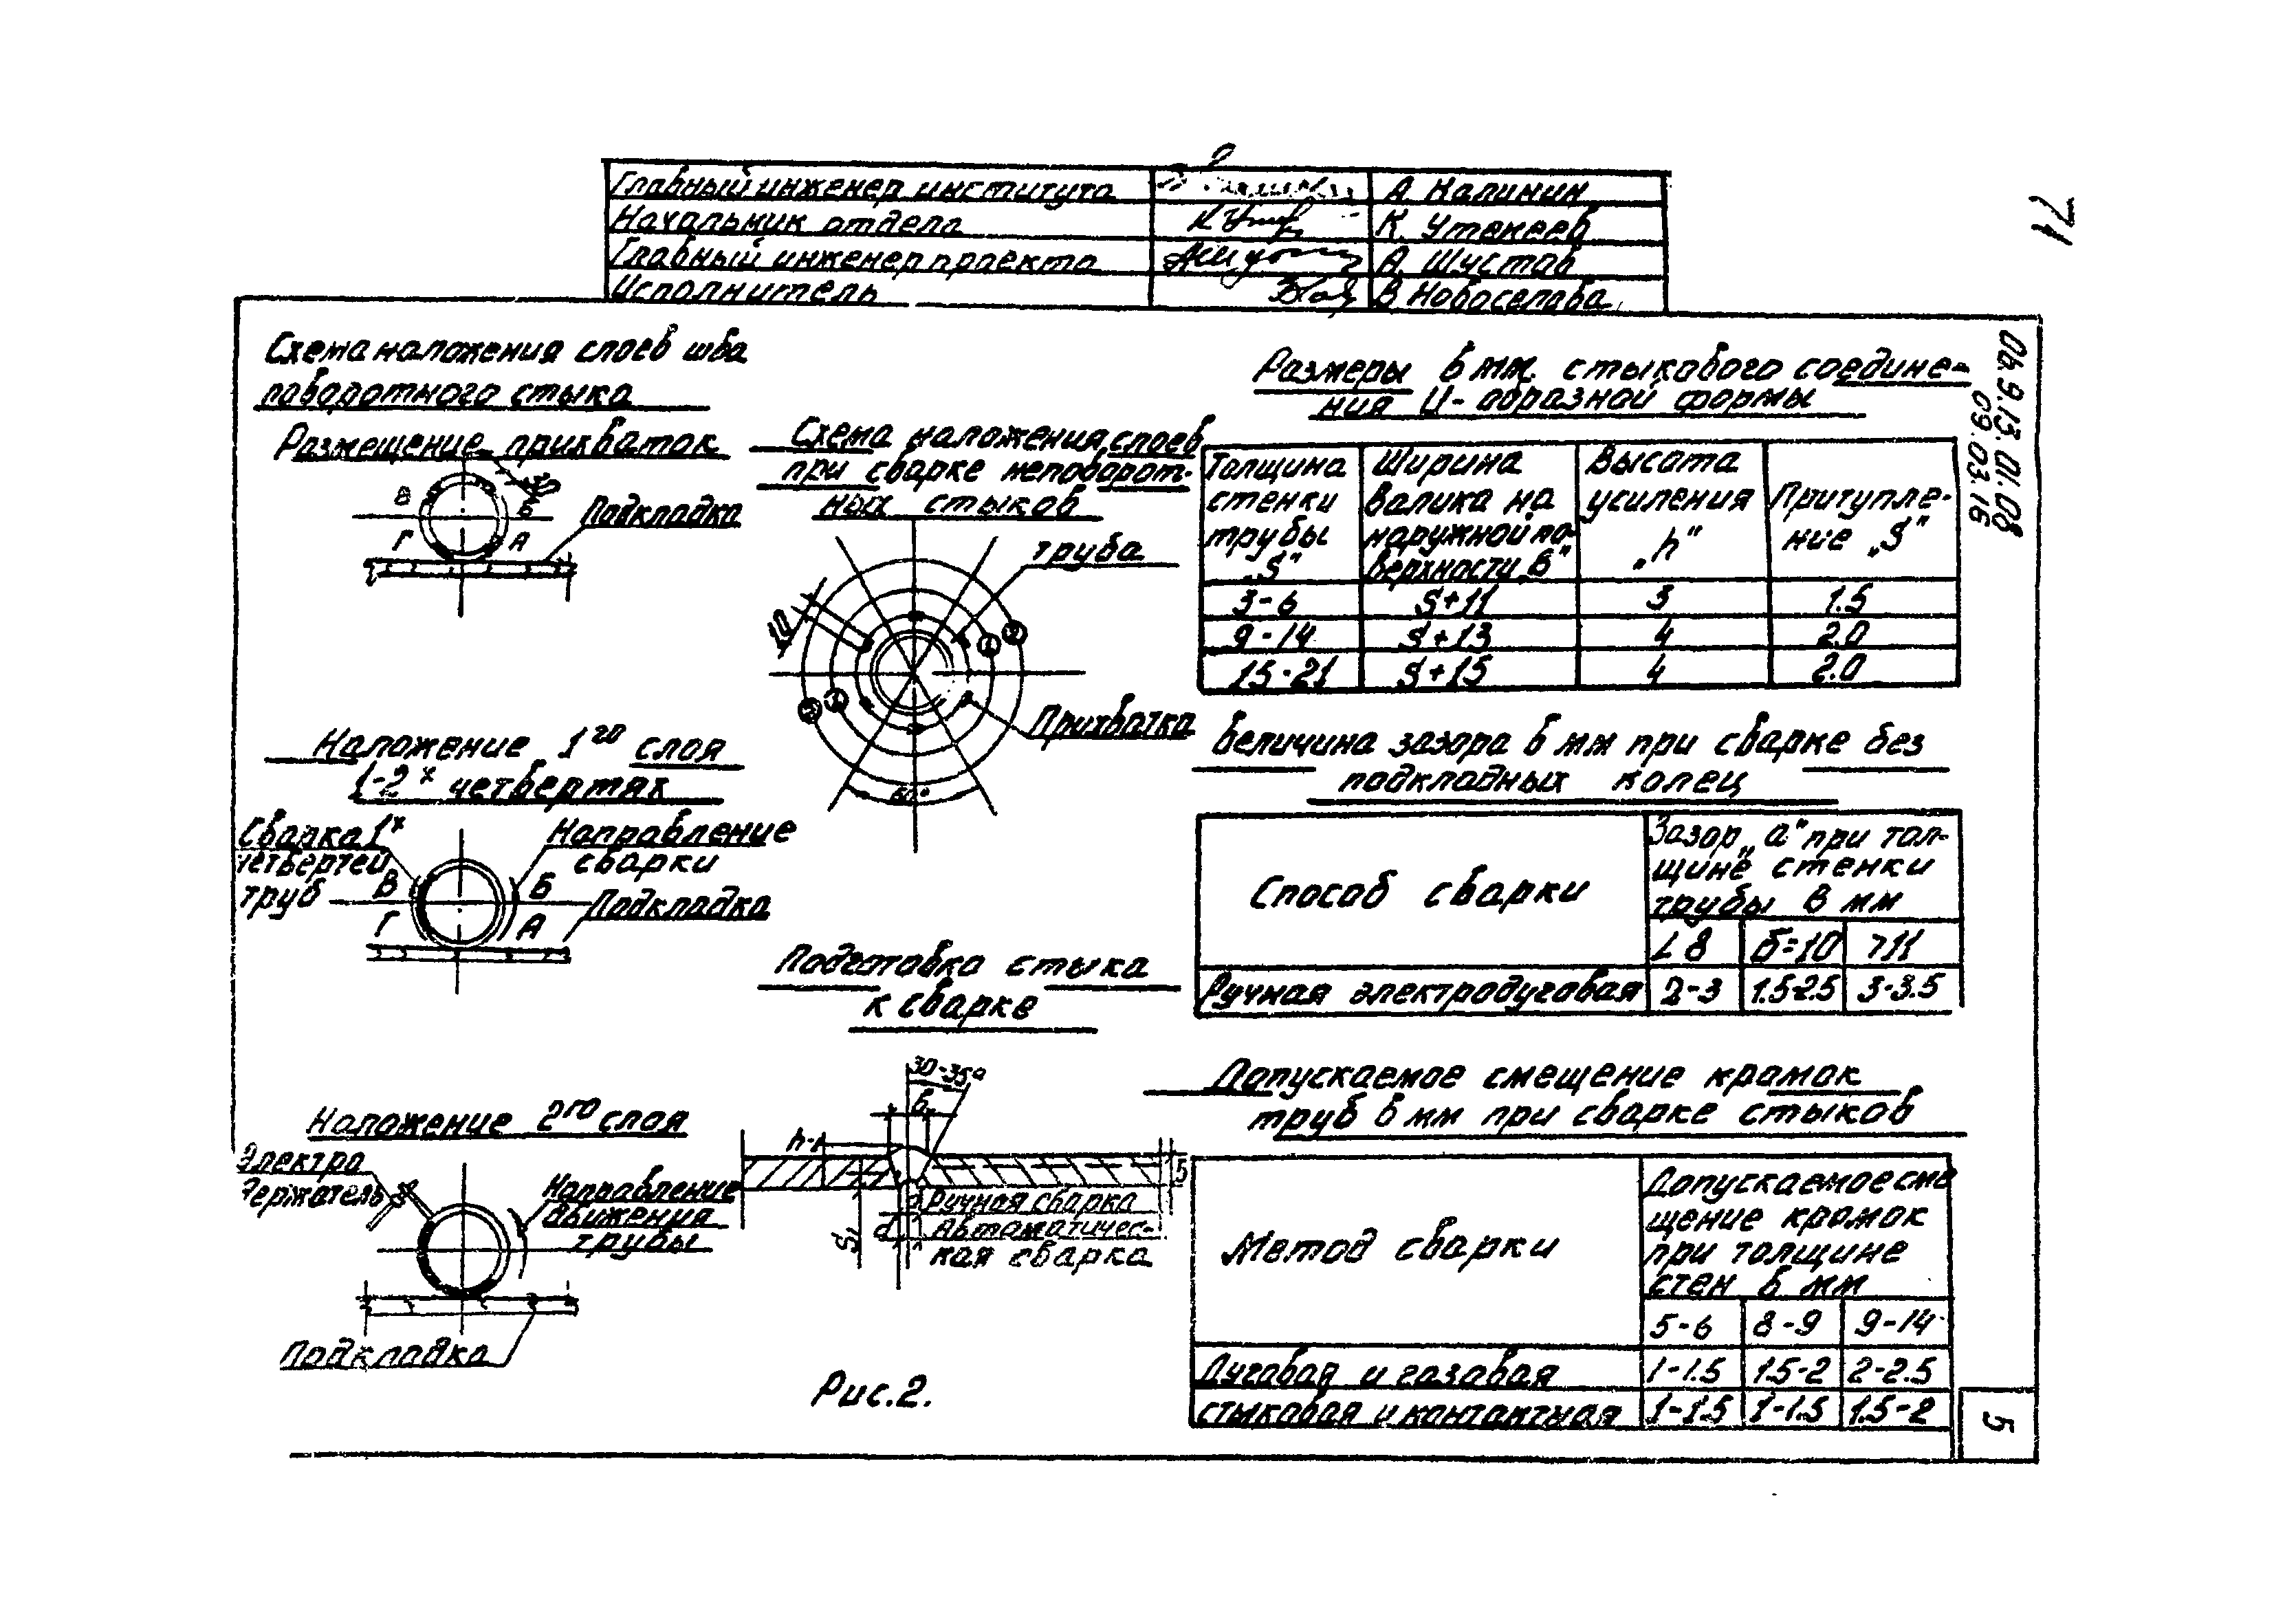 Главный инженер института А. Калинин
Начальник отдела К. Утекеев
Главный инженер проекта А. Шустов
Исполнитель В Новоселова
71
06.9.13.01.08
09.03.16
Схема наложения слоев шва
поворотного стыка
Размещение прихваток
В
Б
Г
А
Подкладка
Наложение 1го слоя
1-2х четвертях
Сварка 1х
четвертей
труб
Направление
сварки
В
Б
Г
А
Подкладка
Наложение 2го слоя
Электро
держатель
Направление
движения
трубы
Подкладка
Схема наложения слоев
при сварке неповорот-
ных стыков
труба
10
1
2
2
1
Прихватка
60°
Подготовка стыка
к сварке
30-35°
в
h
S
S
а
а
Ручная сварка
Автоматичес-
кая сварка
Рис.2.
Размеры в мм. стыкового соедине-
ния U-образной формы
Толщина стенки трубы „S" Ширина валика на наружной по-верхности „в" Высота усиления „h" Притупле-ние „S"
3-6 S+11 3 1.5
9-14 S+13 4 2.0
15-21 S+15 4 2.0
Величина зазора в мм при сварке без
подкладных колец
Способ сварки
Зазор „а" при тол-
щине стенки
трубы в мм
< 8 б=10 >11
Ручная электродуговая 2-3 1.5-2.5 3-3.5
Допускаемое смещение кромок
труб в мм при сварке стыков
Метод сварки
Допускаемое сме
щение кромок
при толщине
стен в мм
5-6 8-9 9-14
Дуговая и газовая 1-1.5 1.5-2 2-2.5
стыковая и контактная 1-1.5 1-1.5 1.5-2
5